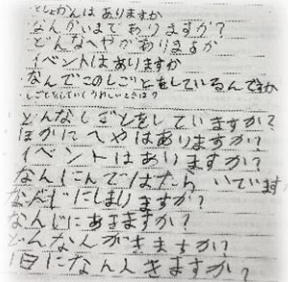 としょかんは ありますか
なんかいまでありますか?
どんなへやがありますか
イベントはありますか
なんでこのしごとをしているんですか
しごとをしていてうれしいときは?
どんなしごとをしていますか?
ほかにへやはありますか?
イベントはありますか?
なんにんではたらいています
なんじにしまりますか?
なんじにあきますか?
どんなんがきますか?
1日になん人きますか?